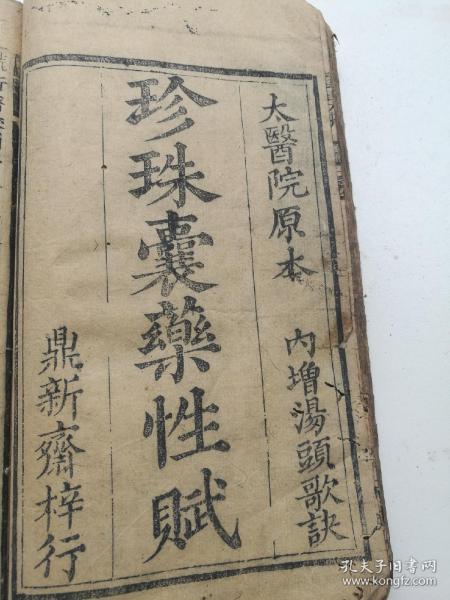 太醫院原本
內增湯頭歌訣
珍珠囊藥性賦
鼎新齋梓行
孔夫子旧书网